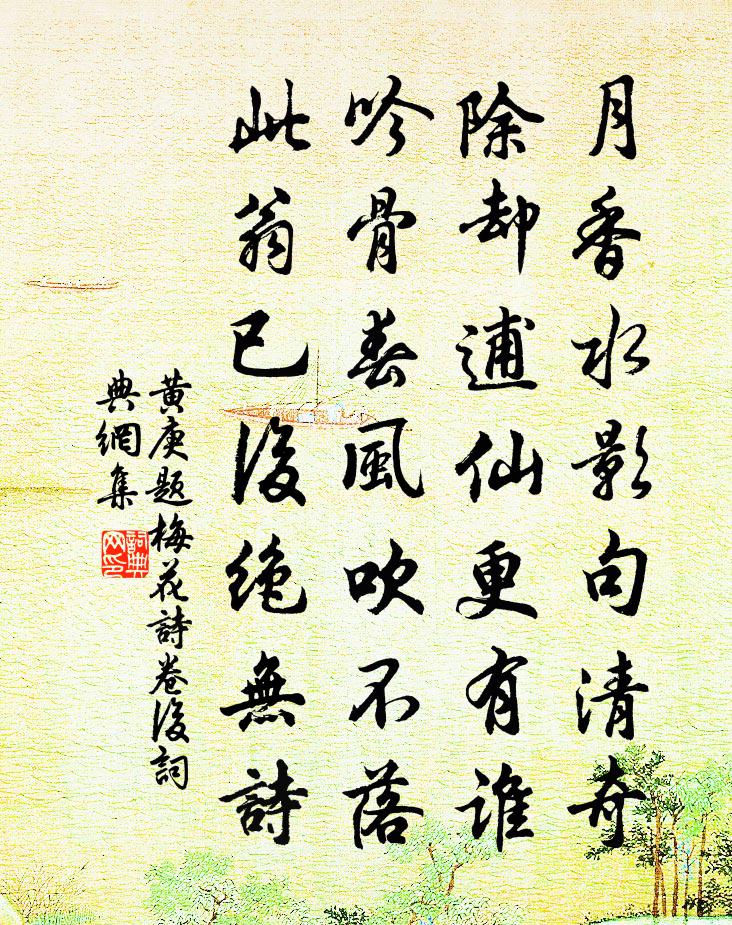 月香水影句清奇
除却逋仙更有誰
吟骨春風吹不落
此翁已後絶無詩
黄庚題梅花詩卷後詞
典網集
詞典
网印